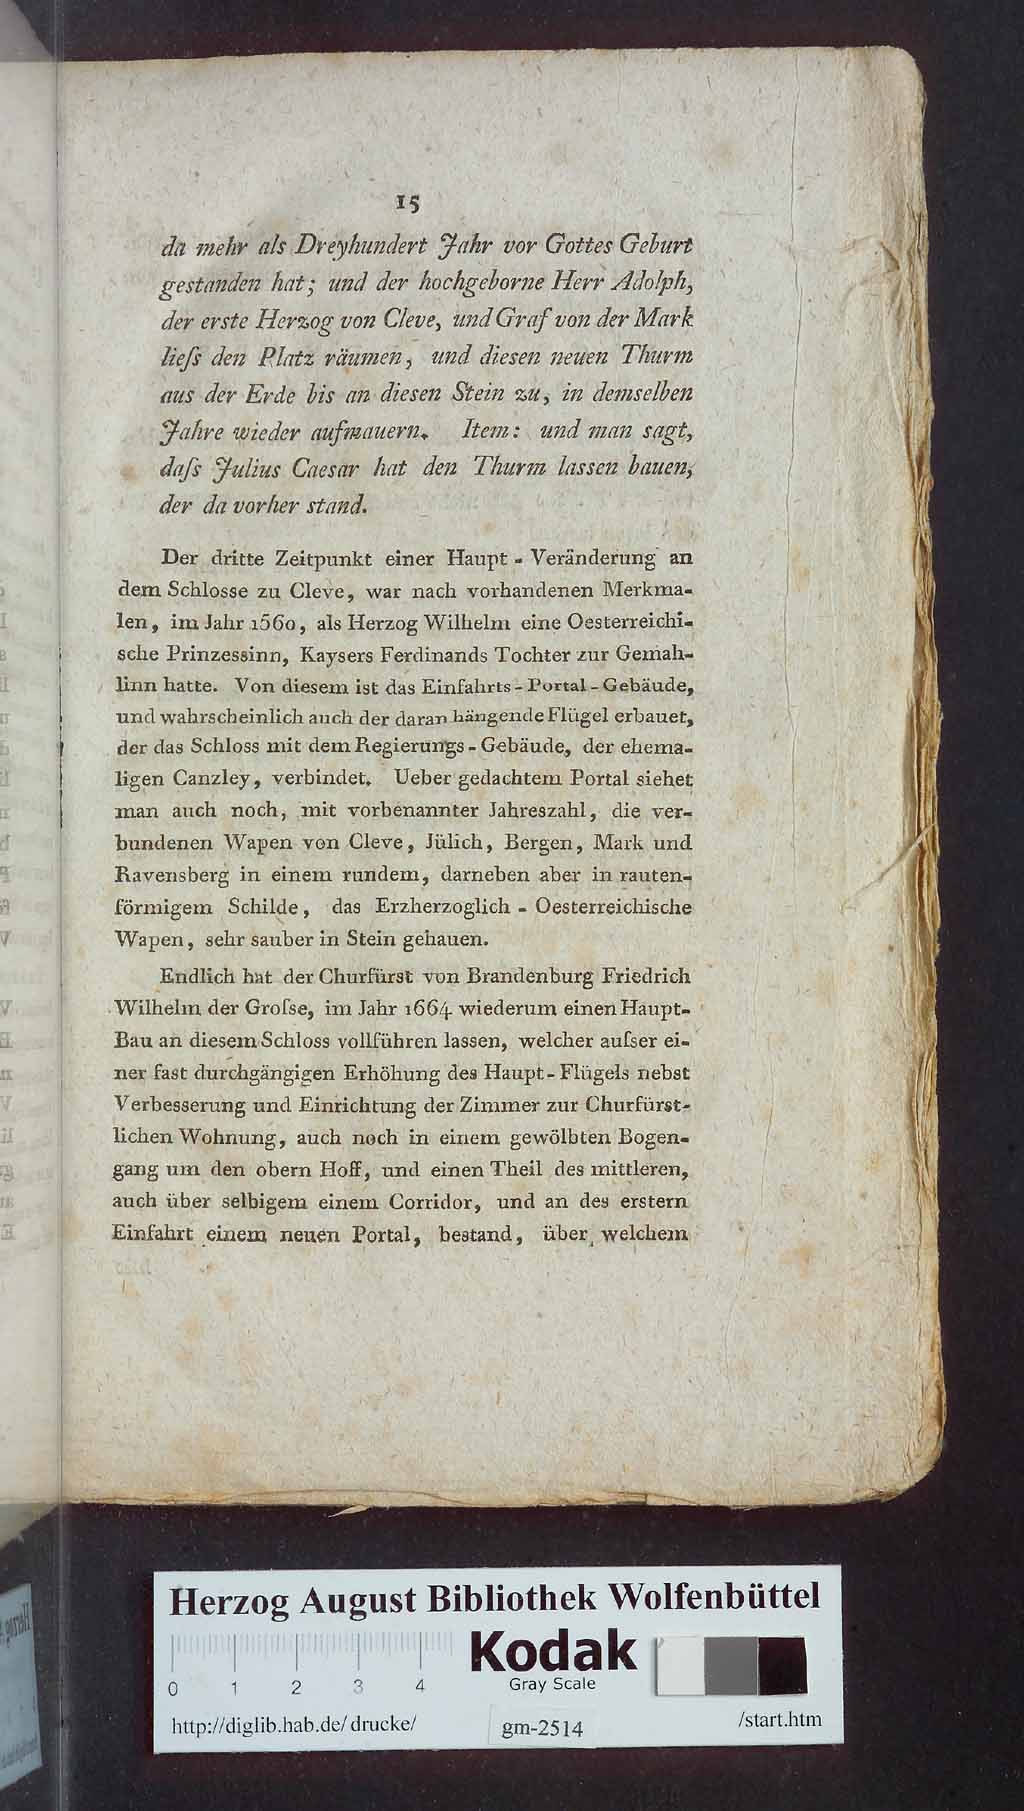 15
da mehr als Dreyhundert Jahr vor Gottes Geburt
gestanden hat; und der hochgeborne Herr Adolph,
der erste Herzog von Cleve, und Graf von der Mark
ließs den Platz räumen, und diesen neuen Thurm
aus der Erde bis an diesen Stein zu, in demselben
Jahre wieder aufmauern. Item: und man sagt,
daſs Julius Caesar hat den Thurm lassen bauen,
der da vorher stand.
Der dritte Zeitpunkt einer Haupt - Veränderung an
dem Schlosse zu Cleve, war nach vorhandenen Merkma-
len, im Jahr 1560, als Herzog Wilhelm eine Oesterreichi-
sche Prinzessinn, Kaysers Ferdinands Tochter zur Gemah-
linn hatte. Von diesem ist das Einfahrts - Portal - Gebäude,
und wahrscheinlich auch der daran hängende Flügel erbauet,
der das Schloss mit dem Regierungs - Gebäude, der ehema-
ligen Canzley, verbindet. Ueber gedachtem Portal siehet
man auch noch, mit vorbenannter Jahreszahl, die ver-
bundenen Wapen von Cleve, Jülich, Bergen, Mark und
Ravensberg in einem rundem, darneben aber in rauten-
förmigem Schilde, das Erzherzoglich - Oesterreichische
Wapen, sehr sauber in Stein gehauen.
Endlich hat der Churfürst von Brandenburg Friedrich
Wilhelm der Groſse, im Jahr 1664 wiederum einen Haupt-
Bau an diesem Schloss vollführen lassen, welcher auſser ei-
ner fast durchgängigen Erhöhung des Haupt - Flügels nebst
Verbesserung und Einrichtung der Zimmer zur Churfürst-
lichen Wohnung, auch noch in einem gewölbten Bogen-
gang um den obern Hoff, und einen Theil des mittleren,
auch über selbigem einem Corridor, und an des erstern
Einfahrt einem neuen Portal, bestand, über welchem
Herzog August Bibliothek Wolfenbüttel
Kodak
Gray Scale
0 1 2 3 4
http://diglib.hab.de/drucke/ gm-2514 /start.htm